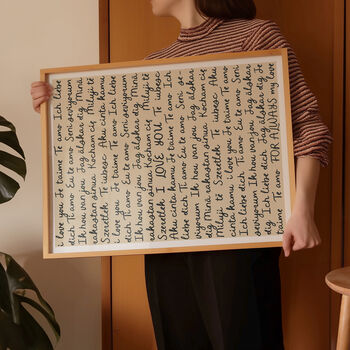 i love you Je taime Te amo Ich liebe
dich Ti amo Eu te amo Seni seviyorum
Ik hou van jou Jag älskar dig Minä
rakastan sinua Kocham cię Miluji tě
Szeretlek Te iubesc Aku cinta kamu
i love you Je taime Te amo Ich liebe
dich Ti amo Eu te amo Seni seviyorum
Ik hou van jou Jag älskar dig Minä
rakastan sinua Kocham cię Miluji tě
Szeretlek I LOVE YOU Te iubesc
Aku cinta kamu Je taime Te amo Ich
liebe dich Ti amo Eu te amo Seni se-
viyorum Ik hou van jou Jag älskar
dig Minä rakastan sinua Kocham cię
Miluji tě Szeretlek Te iubesc Aku
cinta kamu i love you Je taime Te amo
Ich liebe dich Ti amo Eu te amo Seni
seviyorum Ik hou van jou Jag älskar
dig Ich liebe dich Jag älskar dig Je
taime Te amo FOR ALWAYS my love